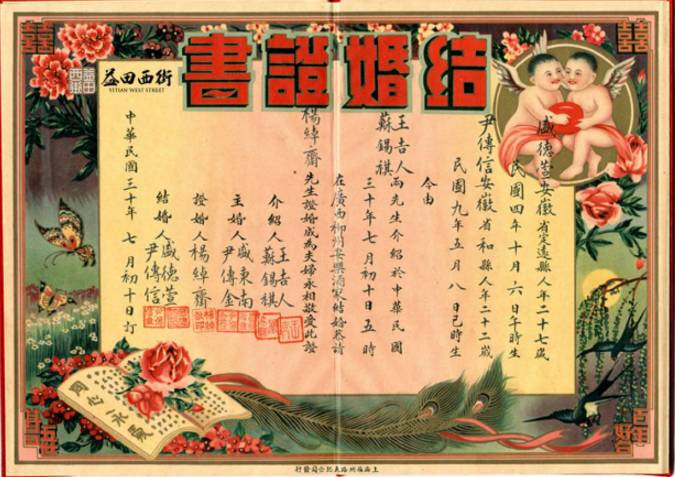 結婚證書
益田西街
YITIAN WEST STREET
益田
西街
盛德萱安徽省定遠縣人年二十七歲
民國四年十月六日午時生
尹傳信安徽省和縣人年二十二歲
民國九年五月八日巳時生
今由
王吉人
蘇錫祺
兩先生介紹於中華民國
三十年七月初十日五時
在廣西柳州安樂酒家結婚恭請
楊綽齋先生證婚成為夫婦永相敬愛此證
介紹人王吉人
蘇錫祺
主婚人盛東南
尹傳金
證婚人楊綽齋
結婚人盛德萱
尹傳信
中華民國三十年七月初十日訂
百年好合